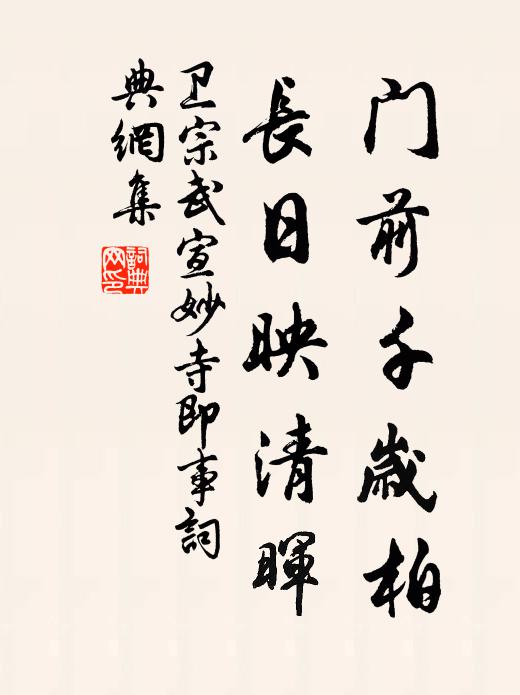 门前千歲柏
長日映清暉
卫宗武宣妙寺即事詞
典網集
詞典
网印